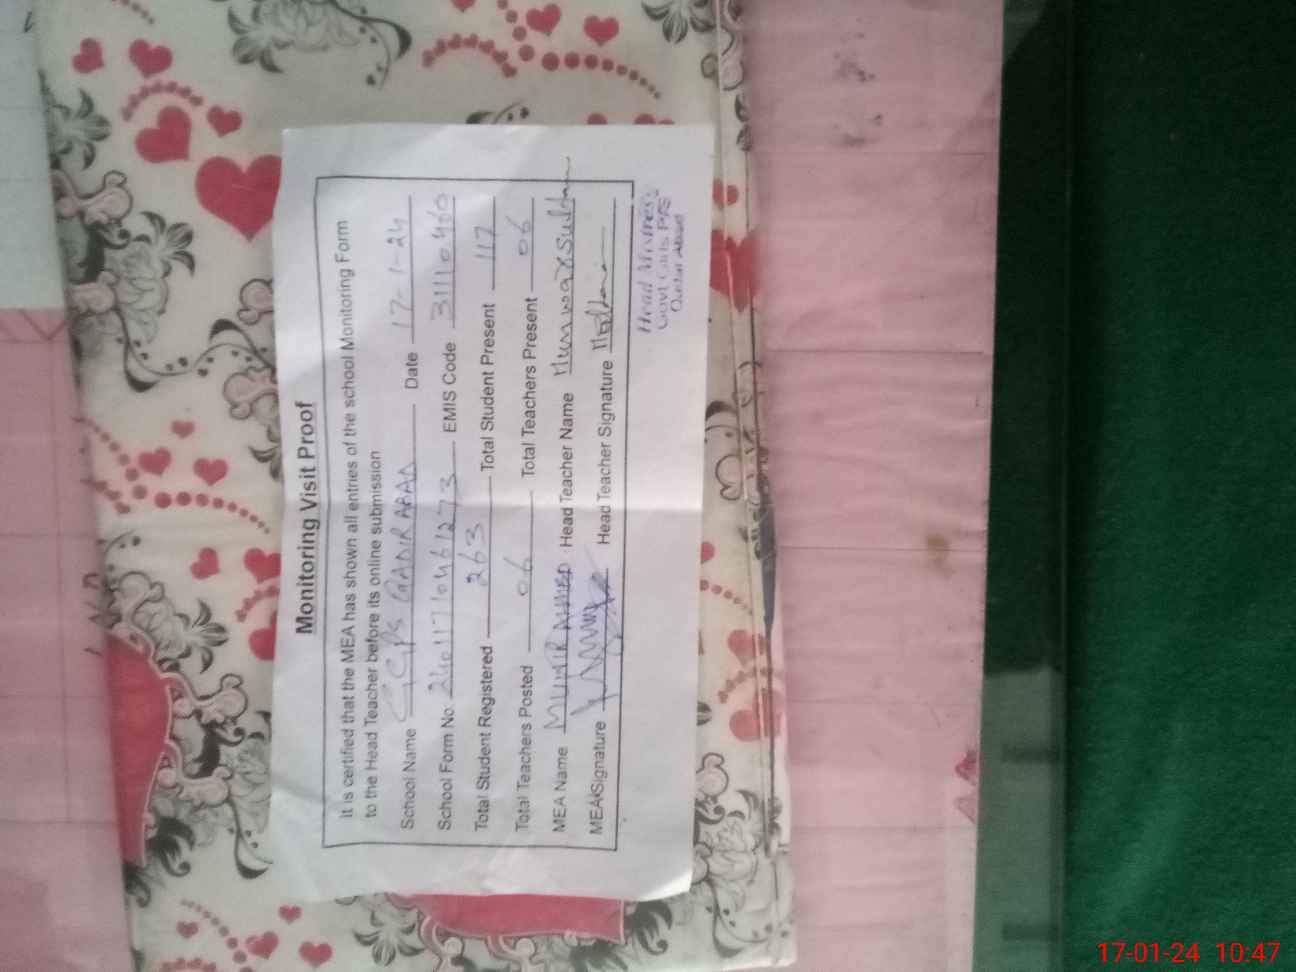 Monitoring Visit Proof
It is certified that the MEA has shown all entries of the school Monitoring Form
to the Head Teacher before its online submission
School Name GGPS QADIR ABAD Date 17-1-24
School Form No 24011710461273 EMIS Code 31110460
Total Student Registered 263 Total Student Present 117
Total Teachers Posted 06 Total Teachers Present 06
MEA Name MUNIR AHMED Head Teacher Name Munwar Sultan
MEA Signature Head Teacher Signature
Head Mistress
Govt Girls P/S
Qadir Abad
17-01-24 10:47